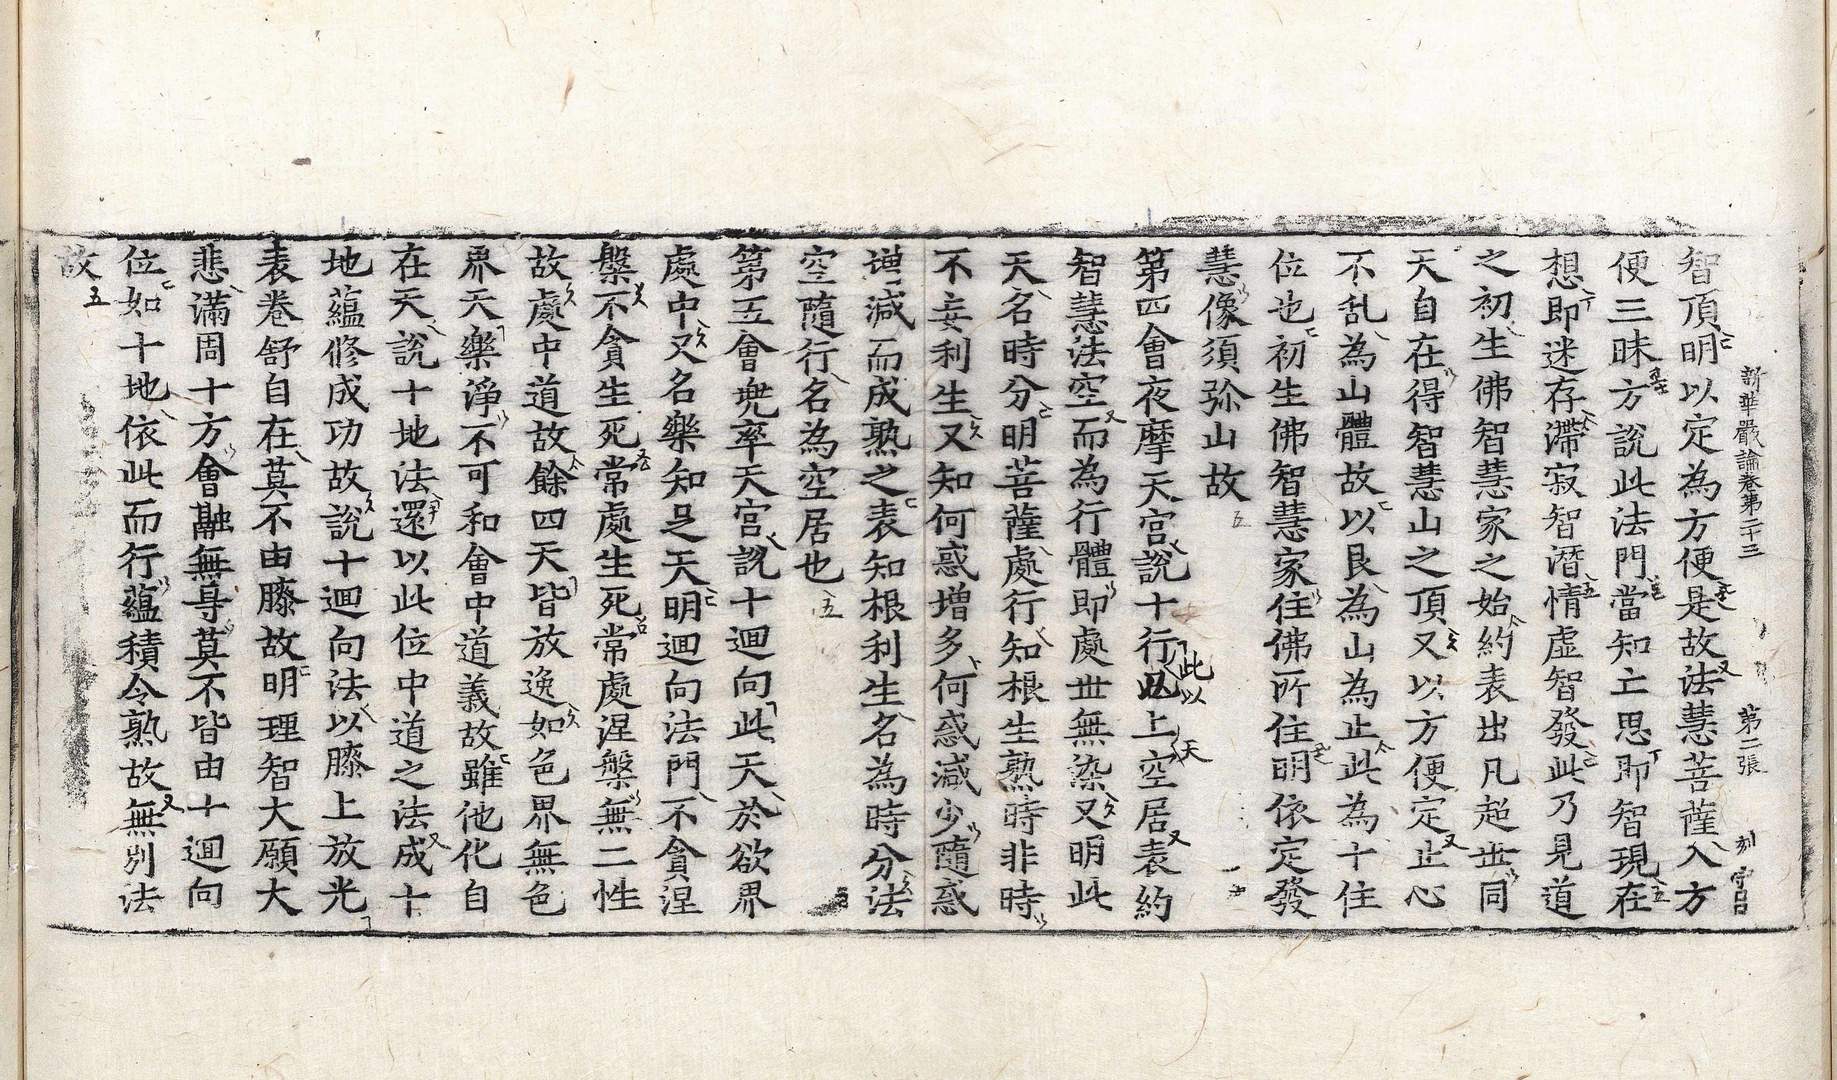 新華嚴論卷第二十三 第二張 刻 守呂
智頂明以定為方便是故法慧菩薩入方
便三昧方說此法門當知亡思即智現在
想即迷存滯寂智潛情虛智發此乃見道
之初生佛智慧家之始約表出凡超世同
天自在得智慧山之頂又以方便定止心
不乱為山體故以艮為山為止此為十住
位也初生佛智慧家住佛所住明依定發
慧像須弥山故
第四會夜摩天宮說十行此以上空居表約
智慧法空而為行體即處世無染又明此
天名時分明菩薩處行知根生熟時非時
不妄利生又知何惑增多何惑減少隨惑
增減而成熟之表知根利生名為時分法
空隨行名為空居也
第五會兜率天宮說十迴向此天於欲界
處中又名樂知足天明迴向法門不貪涅
槃不貪生死常處生死常處涅槃無二性
故處中道故餘四天皆放逸如色界無色
界天樂淨不可和會中道義故雖他化自
在天說十地法還以此位中道之法成十
地蘊修成功故說十迴向法以膝上放光
表卷舒自在莫不由膝故明理智大願大
悲滿周十方會融無导莫不皆由十迴向
位如十地依此而行蘊積令熟故無別法
故